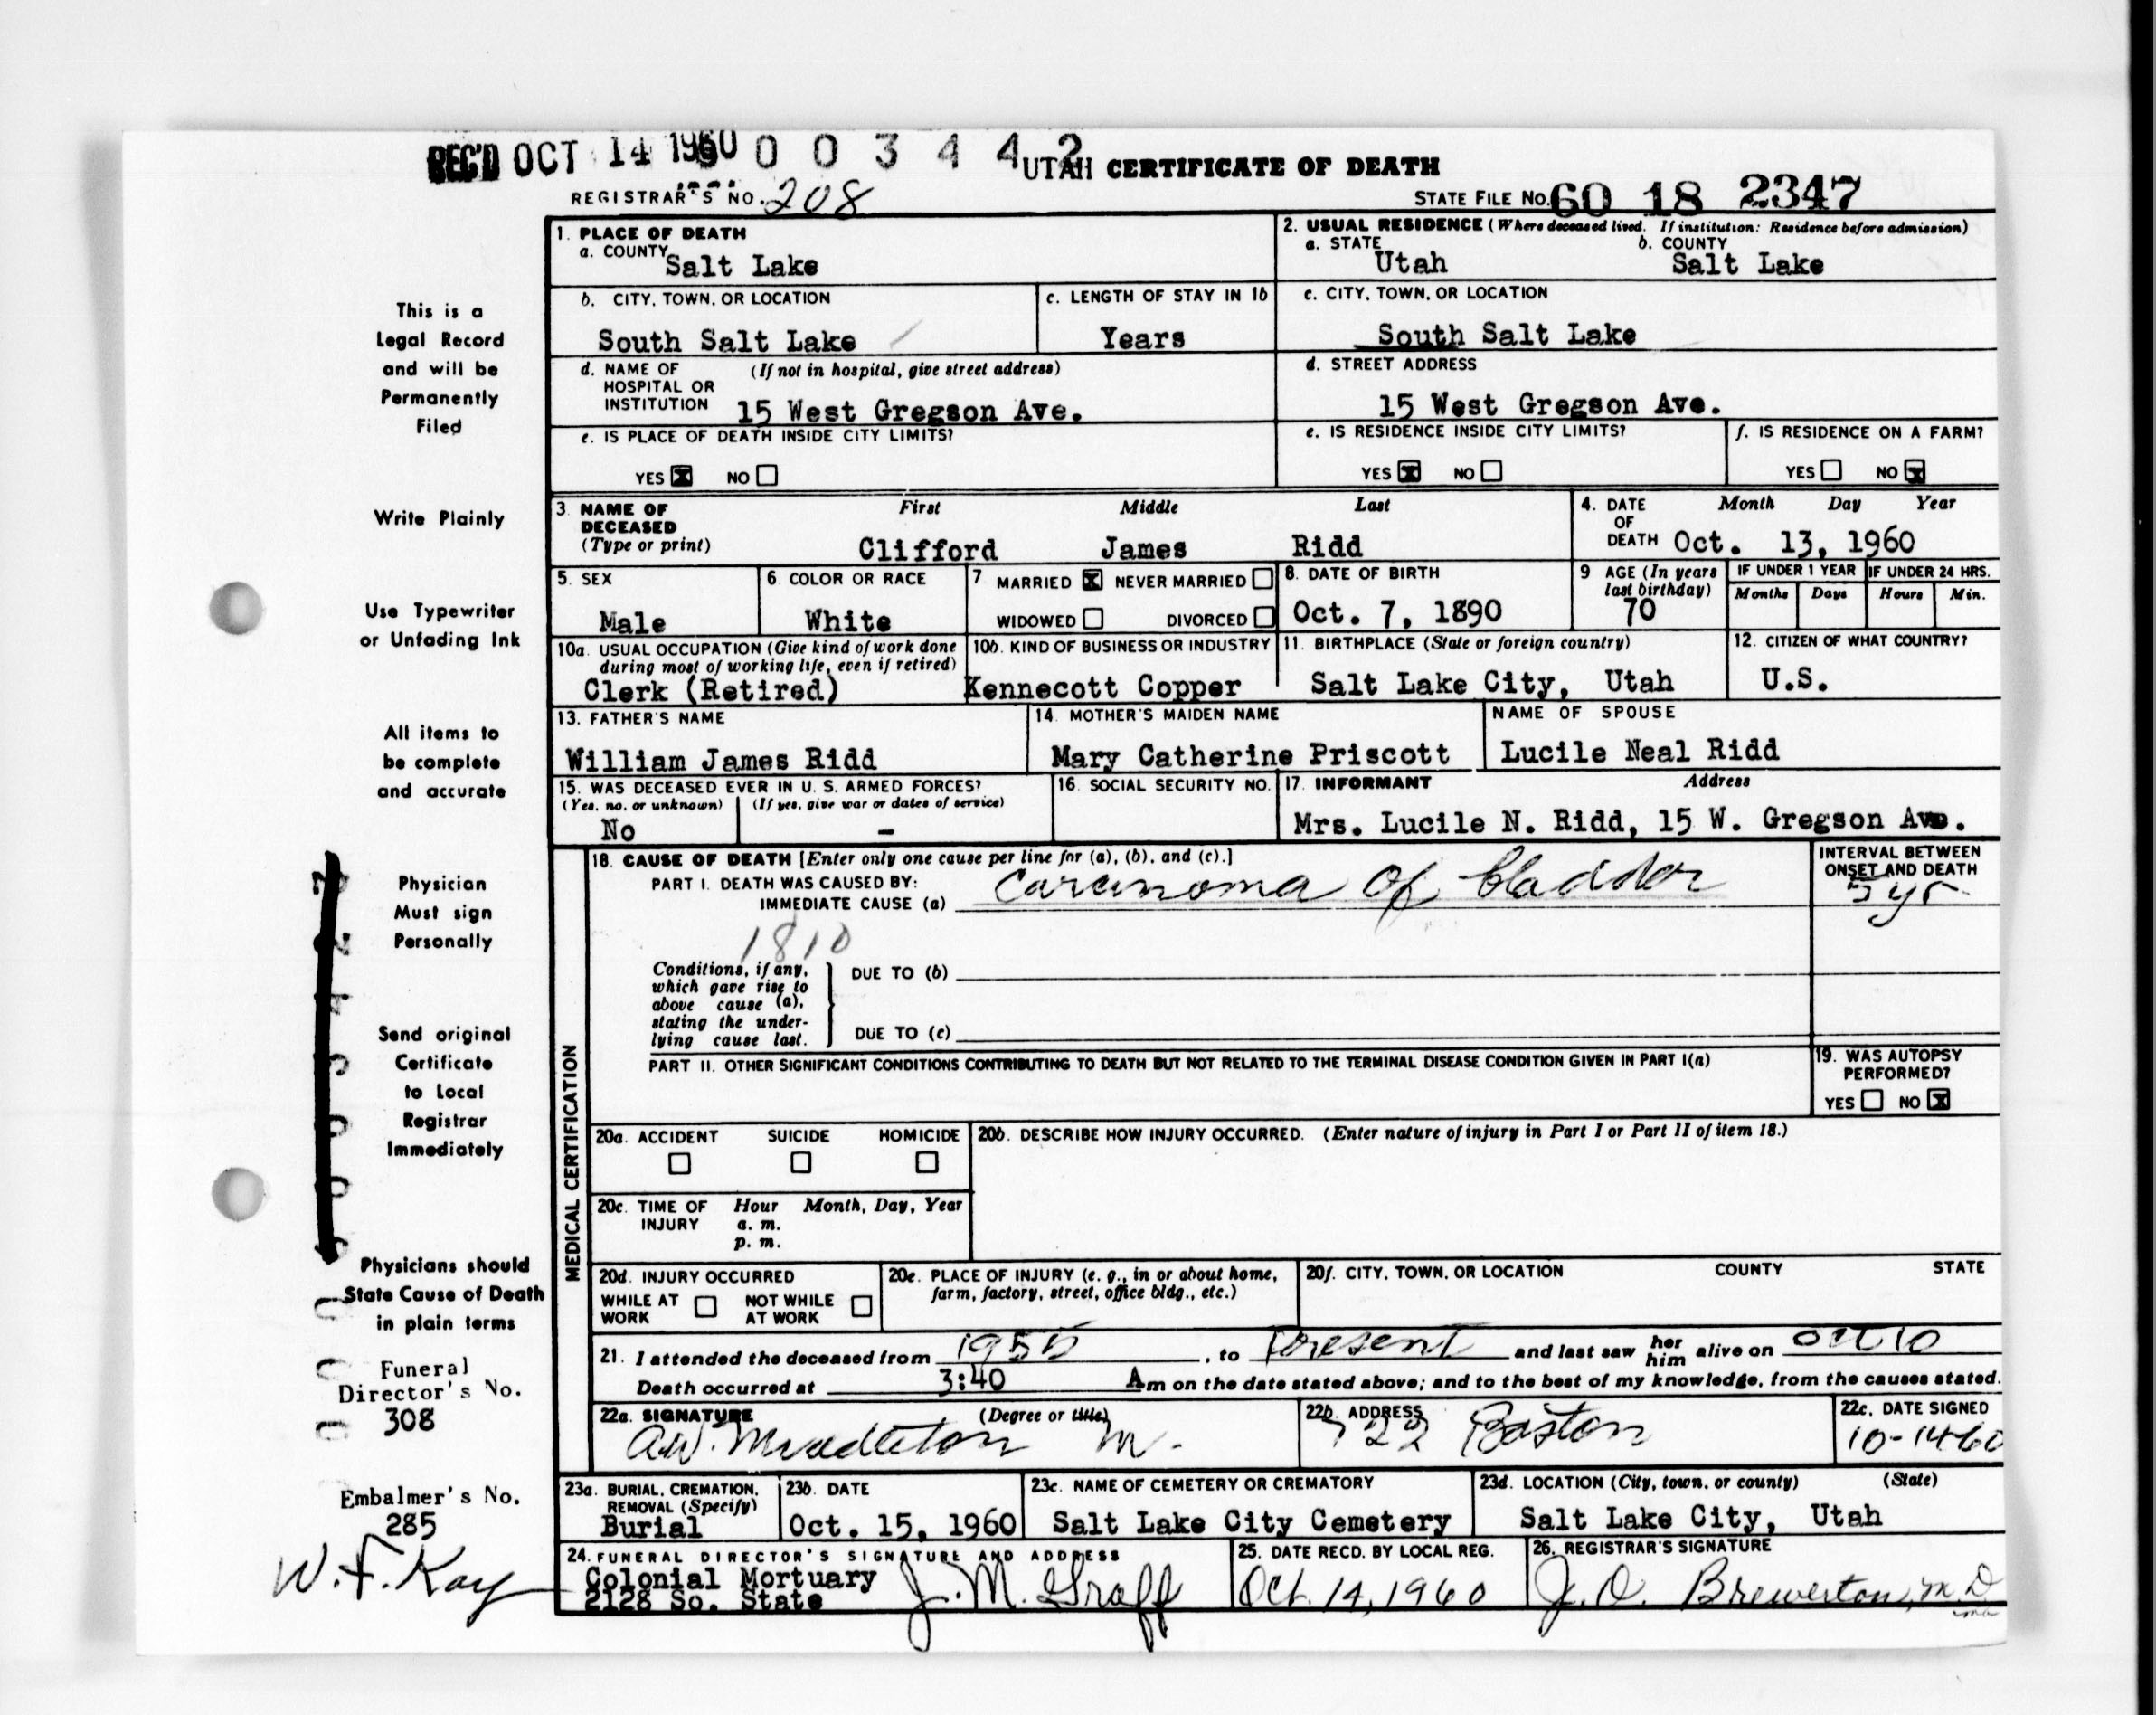 REC'D OCT 14 1960 0 0 3 4 4 2 UTAH CERTIFICATE OF DEATH
REGISTRAR'S NO. 208 STATE FILE NO. 60 18 2347
1. PLACE OF DEATH
a. COUNTY Salt Lake
2. USUAL RESIDENCE (Where deceased lived. If institution: Residence before admission)
a. STATE Utah b. COUNTY Salt Lake
b. CITY, TOWN, OR LOCATION South Salt Lake
c. LENGTH OF STAY IN 1b Years
c. CITY, TOWN, OR LOCATION South Salt Lake
d. NAME OF HOSPITAL OR INSTITUTION (If not in hospital, give street address) 15 West Gregson Ave.
d. STREET ADDRESS 15 West Gregson Ave.
e. IS PLACE OF DEATH INSIDE CITY LIMITS?
YES X NO
e. IS RESIDENCE INSIDE CITY LIMITS?
YES X NO
f. IS RESIDENCE ON A FARM?
YES NO X
3. NAME OF DECEASED (Type or print)
First Middle Last
Clifford James Ridd
4. DATE OF DEATH Month Day Year
Oct. 13, 1960
5. SEX Male
6. COLOR OR RACE White
7 MARRIED X NEVER MARRIED
WIDOWED DIVORCED
8. DATE OF BIRTH Oct. 7, 1890
9 AGE (In years last birthday) 70
IF UNDER 1 YEAR Months Days
IF UNDER 24 HRS. Hours Min.
10a. USUAL OCCUPATION (Give kind of work done during most of working life, even if retired)
Clerk (Retired)
10b. KIND OF BUSINESS OR INDUSTRY
Kennecott Copper
11. BIRTHPLACE (State or foreign country)
Salt Lake City, Utah
12. CITIZEN OF WHAT COUNTRY?
U.S.
13. FATHER'S NAME
William James Ridd
14. MOTHER'S MAIDEN NAME
Mary Catherine Priscott
NAME OF SPOUSE
Lucile Neal Ridd
15. WAS DECEASED EVER IN U. S. ARMED FORCES?
(Yes, no, or unknown) (If yes, give war or dates of service)
No -
16. SOCIAL SECURITY NO.
17. INFORMANT Address
Mrs. Lucile N. Ridd, 15 W. Gregson Ave.
MEDICAL CERTIFICATION
18. CAUSE OF DEATH [Enter only one cause per line for (a), (b), and (c).]
PART I. DEATH WAS CAUSED BY:
IMMEDIATE CAUSE (a) Carcinoma of bladder
INTERVAL BETWEEN ONSET AND DEATH
5 yr
1810
Conditions, if any, which gave rise to above cause (a), stating the underlying cause last.
DUE TO (b)
DUE TO (c)
PART II. OTHER SIGNIFICANT CONDITIONS CONTRIBUTING TO DEATH BUT NOT RELATED TO THE TERMINAL DISEASE CONDITION GIVEN IN PART I(a)
19. WAS AUTOPSY PERFORMED?
YES NO X
20a. ACCIDENT SUICIDE HOMICIDE
20b. DESCRIBE HOW INJURY OCCURRED. (Enter nature of injury in Part I or Part II of item 18.)
20c. TIME OF INJURY Hour Month, Day, Year
a. m.
p. m.
20d. INJURY OCCURRED
WHILE AT WORK NOT WHILE AT WORK
20e. PLACE OF INJURY (e. g., in or about home, farm, factory, street, office bldg., etc.)
20f. CITY, TOWN, OR LOCATION COUNTY STATE
21. I attended the deceased from 1955, to Present and last saw her him alive on Oct 10
Death occurred at 3:40 Am on the date stated above; and to the best of my knowledge, from the causes stated.
22a. SIGNATURE (Degree or title)
A.W. Middleton M.
22b. ADDRESS
722 Boston
22c. DATE SIGNED
10-14-60
23a. BURIAL, CREMATION, REMOVAL (Specify)
Burial
23b. DATE
Oct. 15, 1960
23c. NAME OF CEMETERY OR CREMATORY
Salt Lake City Cemetery
23d. LOCATION (City, town, or county) (State)
Salt Lake City, Utah
24. FUNERAL DIRECTOR'S SIGNATURE AND ADDRESS
Colonial Mortuary J. M. Graff
2128 So. State
25. DATE RECD. BY LOCAL REG.
Oct. 14, 1960
26. REGISTRAR'S SIGNATURE
J. D. Brewerton, M.D
This is a
Legal Record
and will be
Permanently
Filed
Write Plainly
Use Typewriter
or Unfading Ink
All items to
be complete
and accurate
Physician
Must sign
Personally
Send original
Certificate
to Local
Registrar
Immediately
Physicians should
State Cause of Death
in plain terms
Funeral
Director's No.
308
Embalmer's No.
285
W. F. Kay